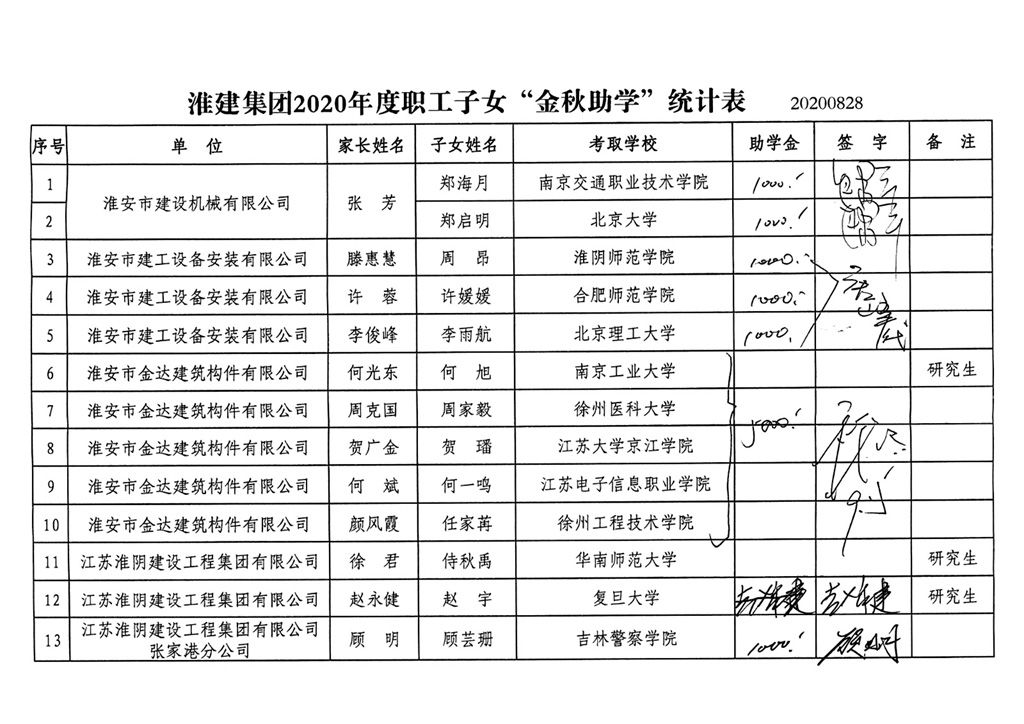 淮建集团2020年度职工子女“金秋助学”统计表 20200828
序号 单 位 家长姓名 子女姓名 考取学校 助学金 签 字 备 注
1 淮安市建设机械有限公司 张 芳 郑海月 南京交通职业技术学院 1000.
2 郑启明 北京大学 1000.
3 淮安市建工设备安装有限公司 滕惠慧 周 昂 淮阴师范学院 1000.
4 淮安市建工设备安装有限公司 许 蓉 许媛媛 合肥师范学院 1000.
5 淮安市建工设备安装有限公司 李俊峰 李雨航 北京理工大学 1000.
6 淮安市金达建筑构件有限公司 何光东 何 旭 南京工业大学 研究生
7 淮安市金达建筑构件有限公司 周克国 周家毅 徐州医科大学 5000.
8 淮安市金达建筑构件有限公司 贺广金 贺 璠 江苏大学京江学院
9 淮安市金达建筑构件有限公司 何 斌 何一鸣 江苏电子信息职业学院
10 淮安市金达建筑构件有限公司 颜风霞 任家苒 徐州工程技术学院
11 江苏淮阴建设工程集团有限公司 徐 君 侍秋禹 华南师范大学 研究生
12 江苏淮阴建设工程集团有限公司 赵永健 赵 宇 复旦大学 研究生
13 江苏淮阴建设工程集团有限公司张家港分公司 顾 明 顾芸珊 吉林警察学院 1000. 顾明